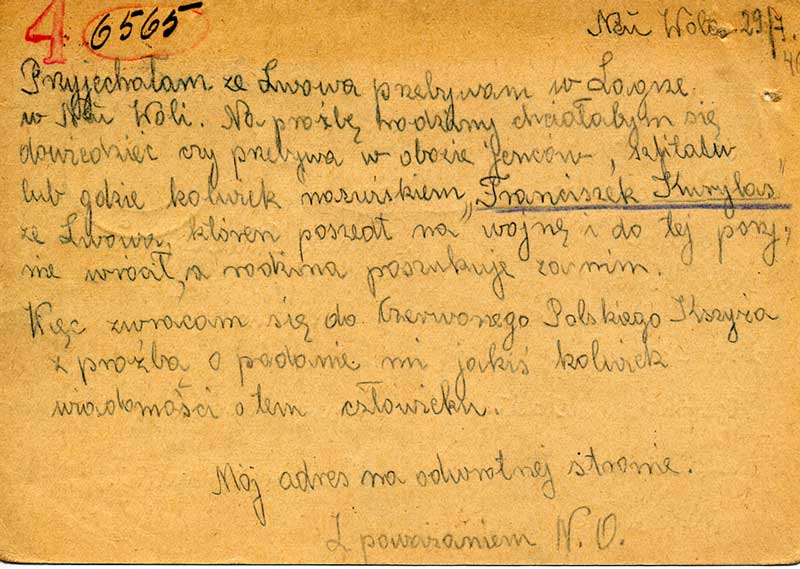 4 6565
Neu Wola 29/7.
40
Przyjechałam ze Lwowa przebywam w Łagrze
w Neu Woli. Na proźbę rodziny chciałabym się
dowiedzieć czy przebywa w obozie jenców, szpitalu
lub gdzie kolwiek nazwiskiem „Franciszek Kurylas"
ze Lwowa, któren poszedł na wojnę i do tej pory,
nie wrócił, a rodzina poszukuje zanim.
Więc zwracam się do Czerwonego Polskiego Kszyża
z proźba o podanie mi jakiś kolwiek
wiadomości o tem człowieku.
Mój adres na odwrotnej stronie.
Z poważaniem N. O.